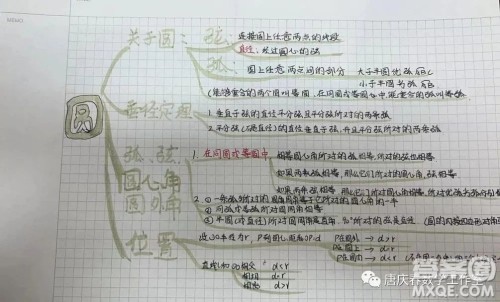 圆
关于圆：
弦：
连接圆上任意两点的线段
直径：经过圆心的弦
弧：
圆上任意两点间的部分
大于半圆 优弧
小于半圆 劣弧
(能够重合的两个圆叫等圆，在同圆或等圆中，能重合的弧叫等弧
垂径定理
1.垂直于弦的直径平分弦且平分弦所对的两条弧
2.平分弦(不是直径)的直径垂直于弦，并且平分弦所对的两条弧
弧、弦
圆心角
圆周角
1.在同圆或等圆中
相等圆心角所对的弧相等，所对的弦也相等
如果两条弧相等，那么它们所对的圆心角、弦相等
如果两条弦相等，那么它们所对圆心角相等
2.①一条弧所对的圆周角等于它所对的圆心角的一半
②同弧或等弧所对圆周角相等
③半圆(或直径)所对圆周角是直角，90°所对的弦是直径
位置
设⊙O半径为r，P到圆心距离OP=d
P在圆外 → d>r
P在圆上 → d=r
P在圆内 → d<r
直线l和⊙O相交 d<r
相切 d=r
相离 d>r
唐庆春数学工作